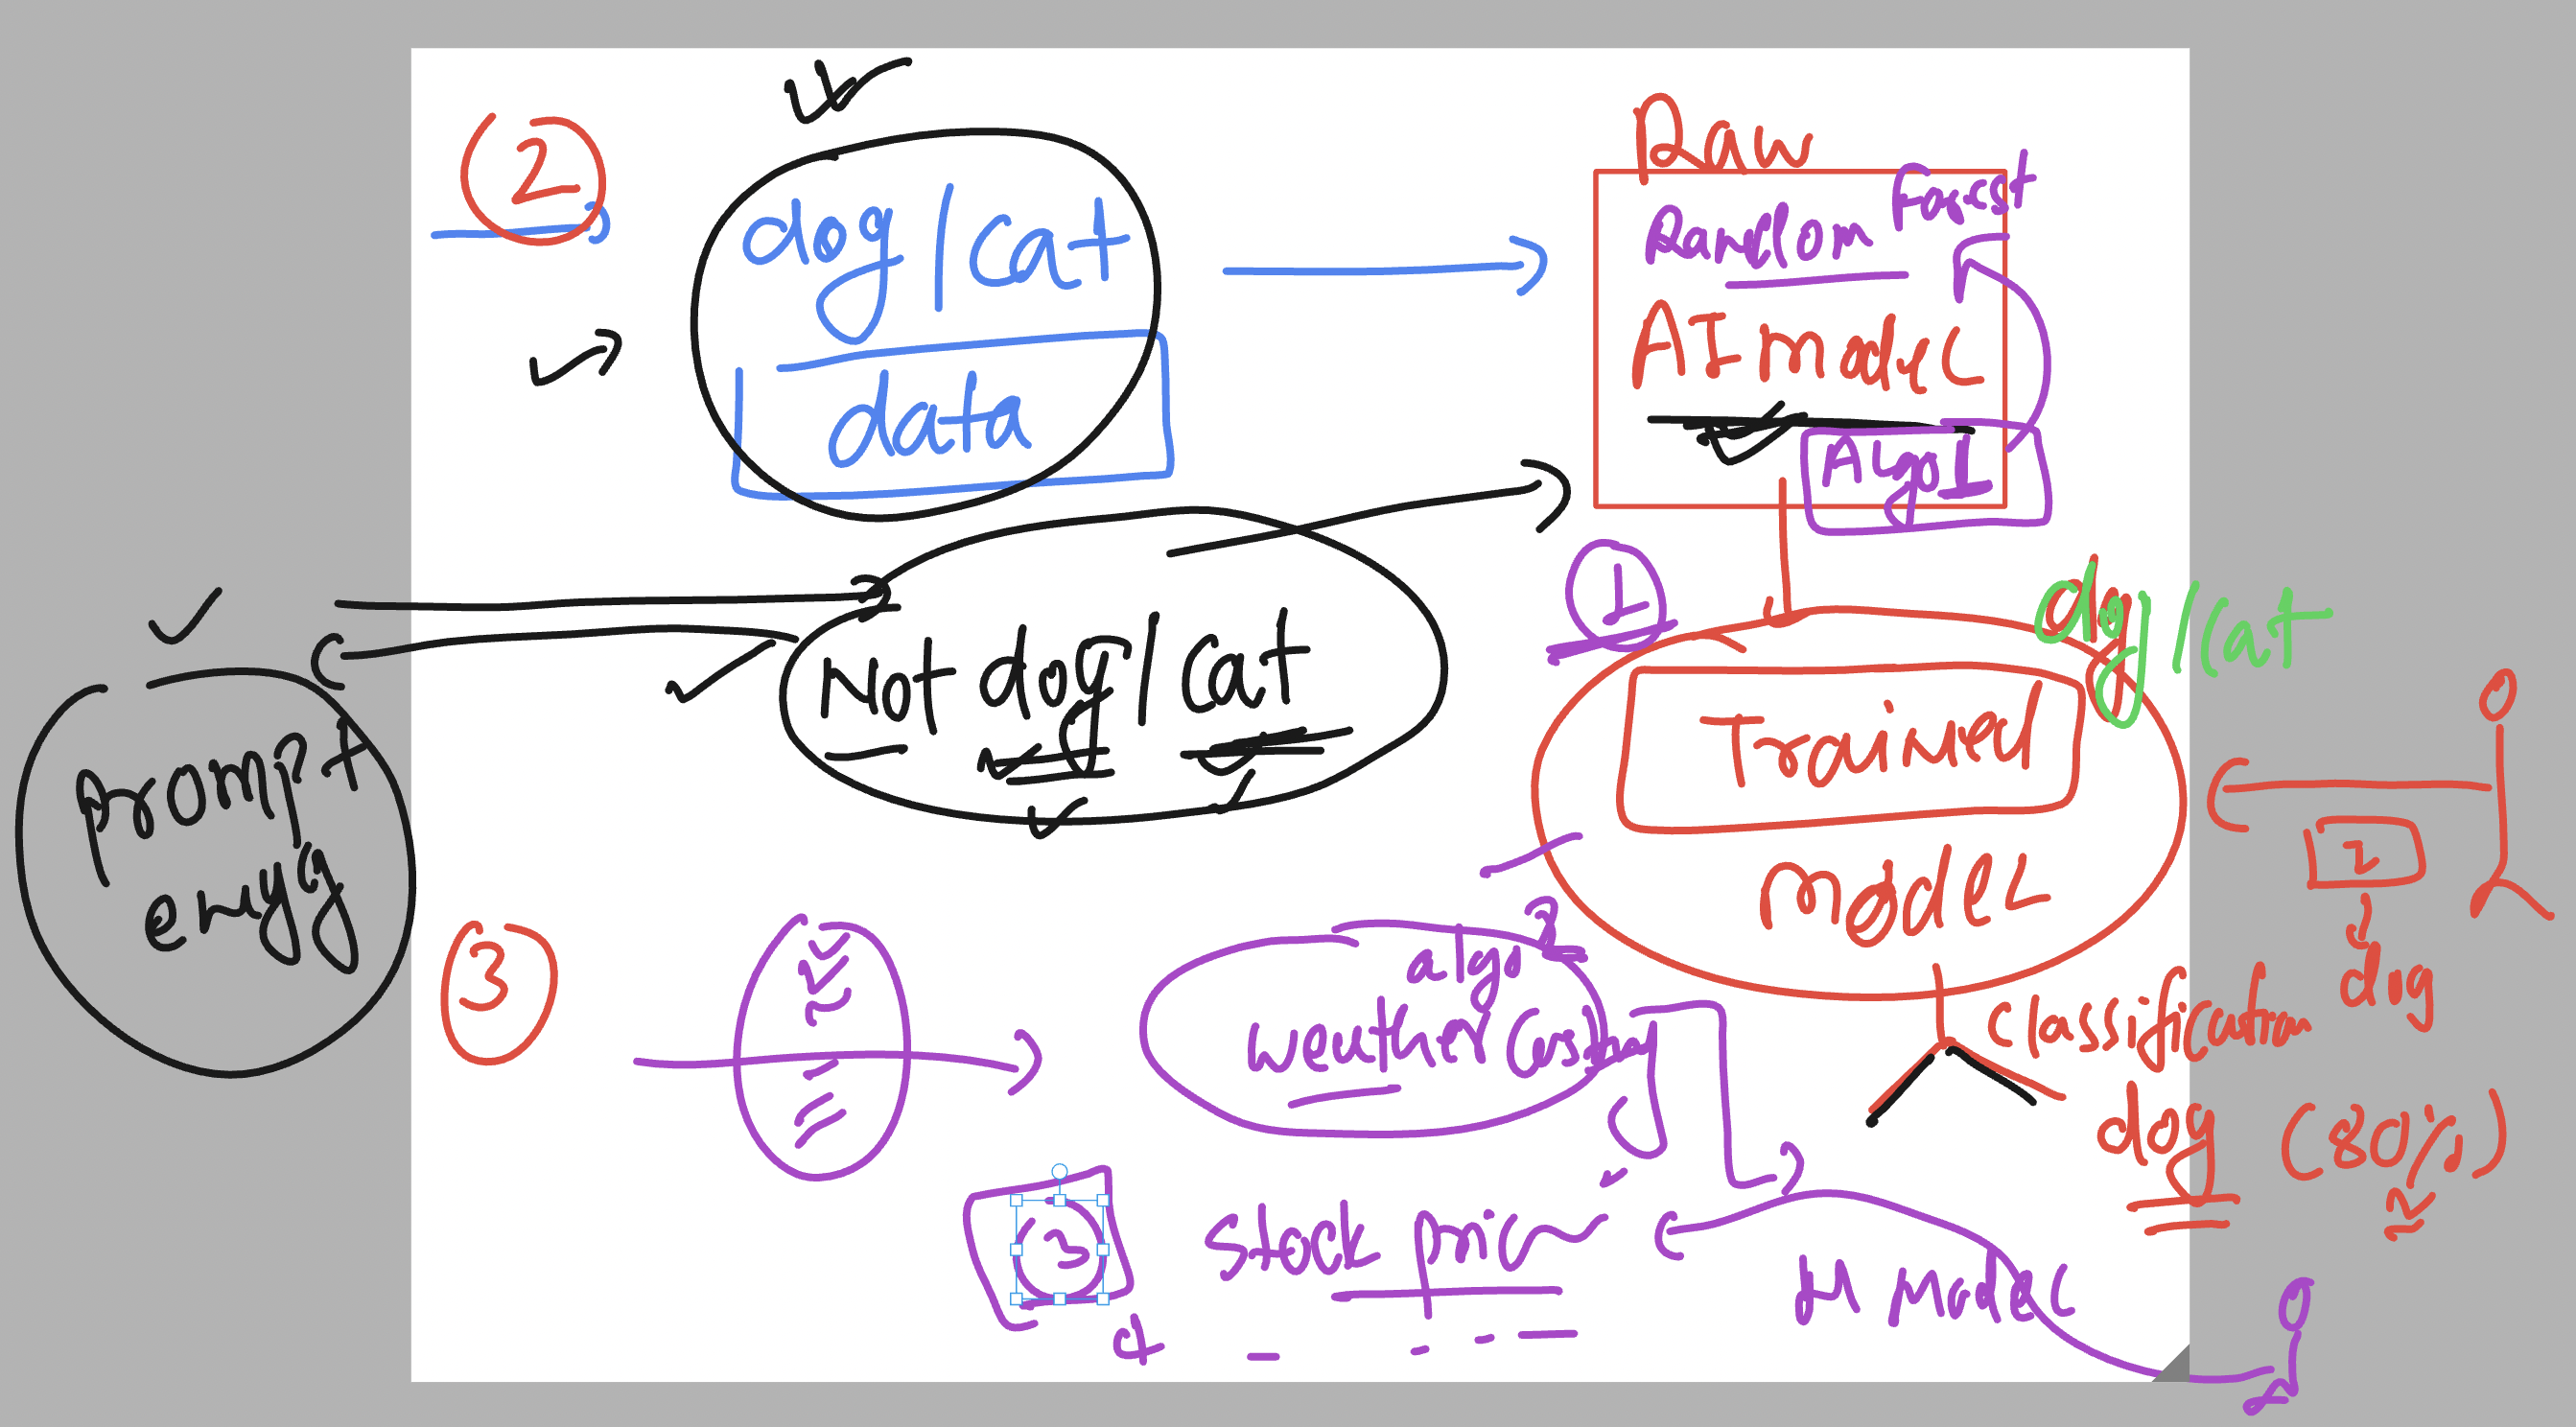 2
dog/cat
data
Raw
Random Forest
AI model
Algo 1
Not dog/cat
prompt
engg
1
dog/cat
Trained
model
2
dog
classification
dog (80%)
3
algo 2
weather
3
stock price
4
M Model